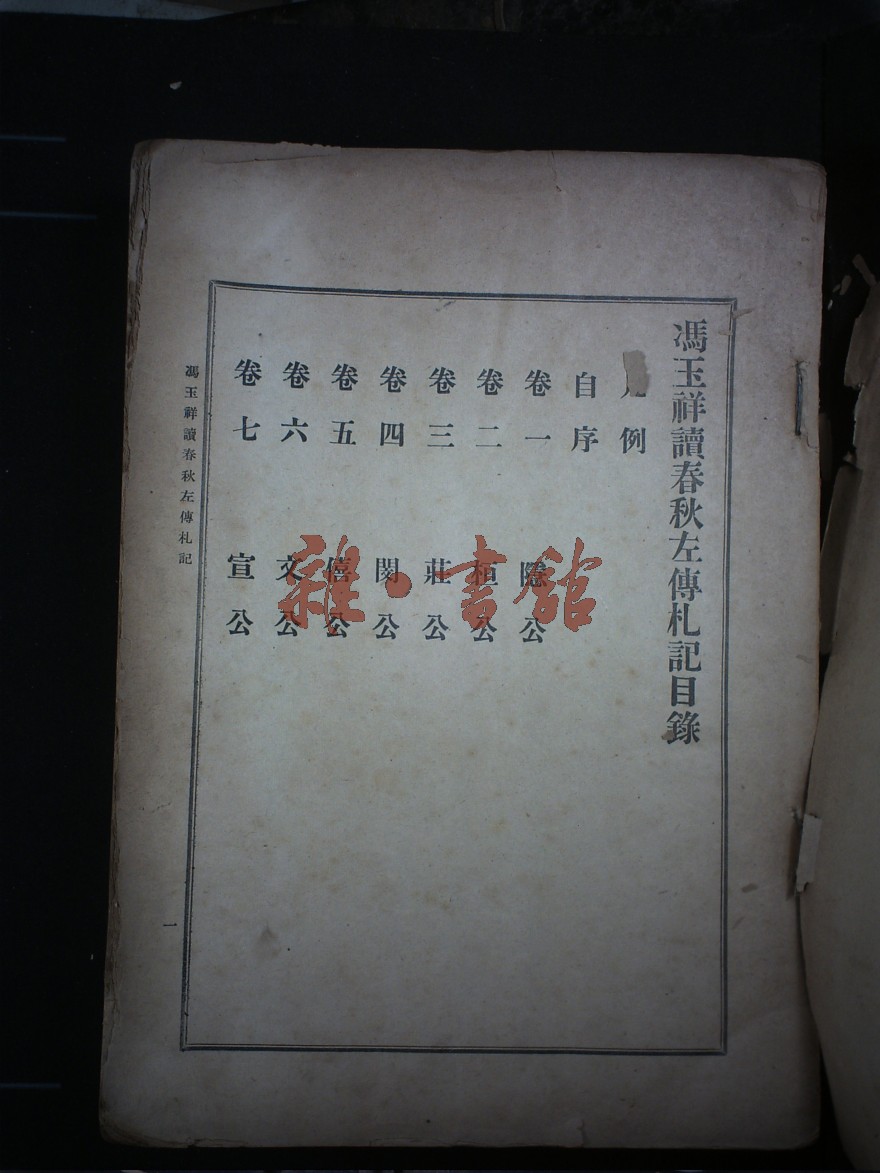 馮玉祥讀春秋左傳札記目錄
例
自序
卷一 隱公
卷二 桓公
卷三 莊公
卷四 閔公
卷五 僖公
卷六 文公
卷七 宣公
馮玉祥讀春秋左傳札記
一
雜·書館